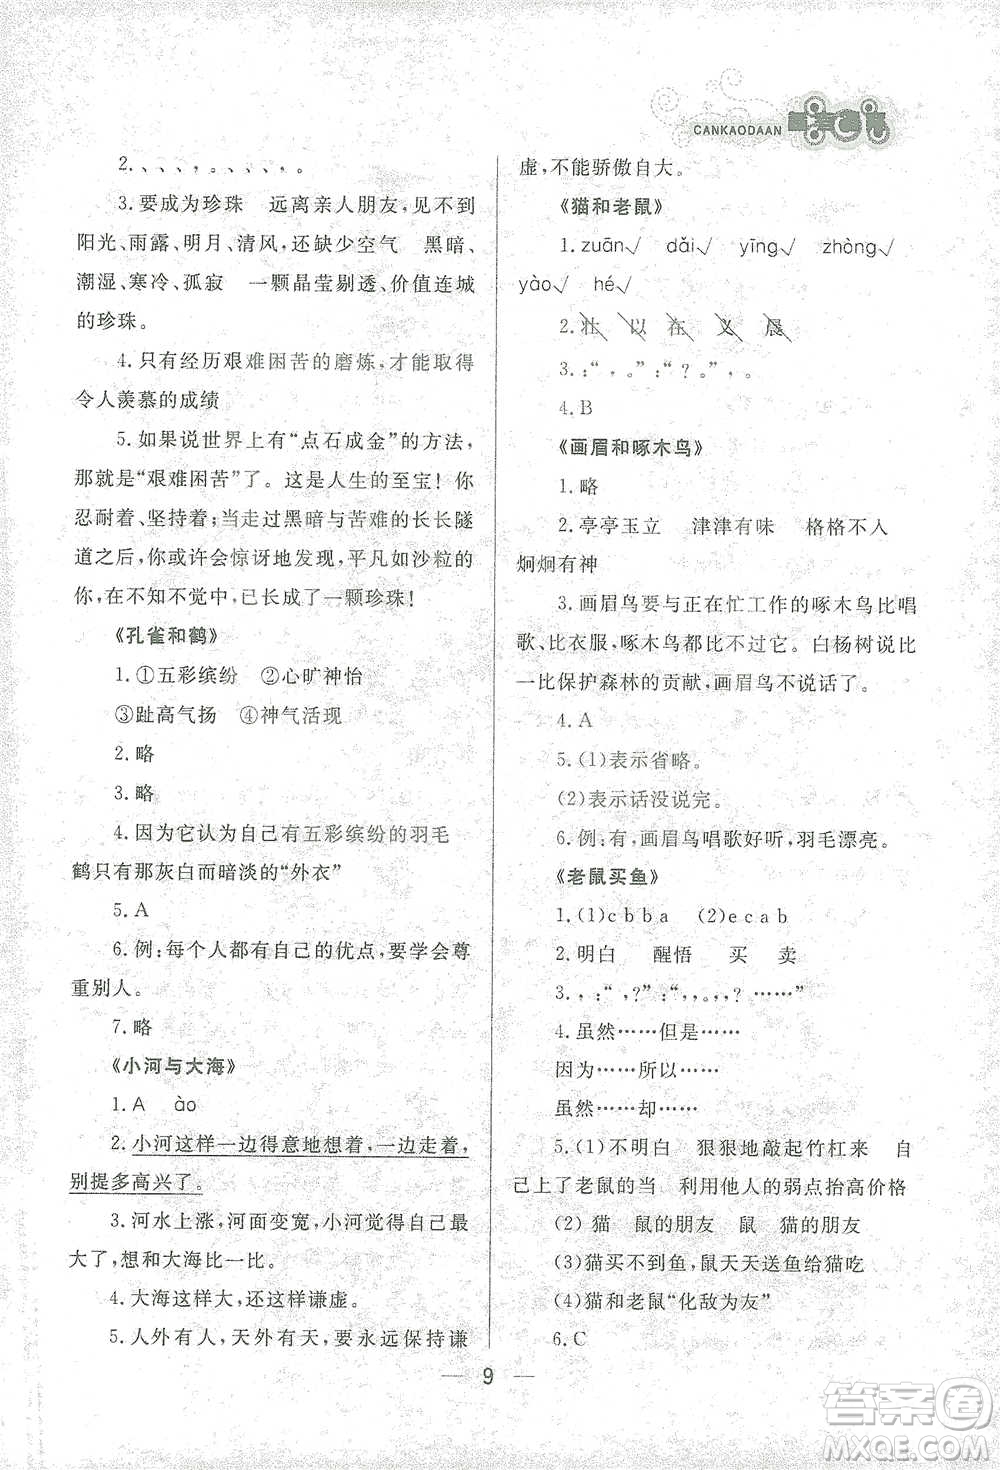 CANKAODAAN
2.、、、,、、、。
3.要成为珍珠 远离亲人朋友,见不到
阳光、雨露、明月、清风,还缺少空气 黑暗、
潮湿、寒冷、孤寂 一颗晶莹剔透、价值连城
的珍珠。
4.只有经历艰难困苦的磨炼,才能取得
令人羡慕的成绩
5.如果说世界上有“点石成金”的方法,
那就是“艰难困苦”了。这是人生的至宝!你
忍耐着、坚持着;当走过黑暗与苦难的长长隧
道之后,你或许会惊讶地发现,平凡如沙粒的
你,在不知不觉中,已长成了一颗珍珠!
《孔雀和鹤》
1.①五彩缤纷 ②心旷神怡
③趾高气扬 ④神气活现
2.略
3.略
4.因为它认为自己有五彩缤纷的羽毛
鹤只有那灰白而暗淡的“外衣”
5.A
6.例:每个人都有自己的优点,要学会尊
重别人。
7.略
《小河与大海》
1.A ào
2.小河这样一边得意地想着,一边走着,
别提多高兴了。
3.河水上涨,河面变宽,小河觉得自己最
大了,想和大海比一比。
4.大海这样大,还这样谦虚。
5.人外有人,天外有天,要永远保持谦
虚,不能骄傲自大。
《猫和老鼠》
1.zuān√ dǎi√ yīng√ zhòng√
yào√ hé√
2.壮 以 在 义 晨
3.:“,。”:“?。”,。
4.B
《画眉和啄木鸟》
1.略
2.亭亭玉立 津津有味 格格不入
炯炯有神
3.画眉鸟要与正在忙工作的啄木鸟比唱
歌、比衣服,啄木鸟都比不过它。白杨树说比
一比保护森林的贡献,画眉鸟不说话了。
4.A
5.(1)表示省略。
(2)表示话没说完。
6.例;有,画眉鸟唱歌好听,羽毛漂亮。
《老鼠买鱼》
1.(1)c b b a (2)e c a b
2.明白 醒悟 买 卖
3.,:“,?”:“,,。,? ……”
4.虽然……但是……
因为……所以……
虽然……却……
5.(1)不明白 狠狠地敲起竹杠来 自
己上了老鼠的当 利用他人的弱点抬高价格
(2)猫 鼠的朋友 鼠 猫的朋友
(3)猫买不到鱼,鼠天天送鱼给猫吃
(4)猫和老鼠“化敌为友”
6.C
9
答案圈
MXQE.COM